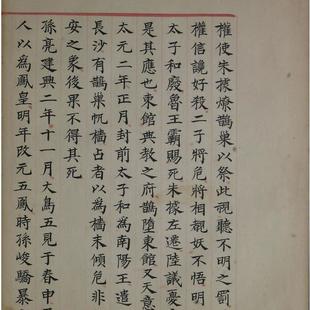 權使朱據燎鵲巢以祭此視聽不明之罰
權信讒好殺二子將危將相覩妖不悟明
太子和廢魯王霸賜死朱據左遷陸議憂
是其應也東館典教之府鵲墮東館又天意
太元二年正月封前太子和為南陽王遣
長沙有鵲巢帆檣占者以為檣末傾危非
安之象後果不得其死
孫亮建興二年十一月大鳥五見于春申
人以為鳳皇明年改元五鳳時孫峻驕暴